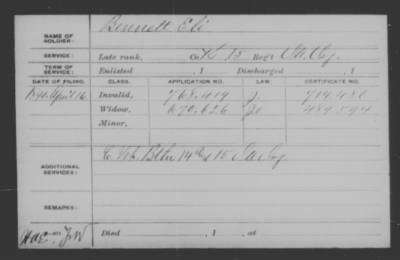 NAME OF SOLDIER: Bennett Eli
SERVICE: Late rank, Co. K 15 Reg't Cav
TERM OF SERVICE: Enlisted , 1 Discharged , 1
DATE OF FILING. CLASS. APPLICATION NO. LAW. CERTIFICATE NO.
April 16 Invalid, 768.419 J. 714.480
Widow, 670.626 489.594
Minor,
ADDITIONAL SERVICES: 14 & 15 Cav
REMARKS:
Died , 1 , at